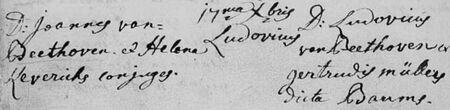 D: Joannes van
Beethoven & Helena
Keverichs conjuges.
17ma Xbris
Ludovicus
D: Ludovicus
van Beethoven &
gertrudis müllers
dicta Baums.